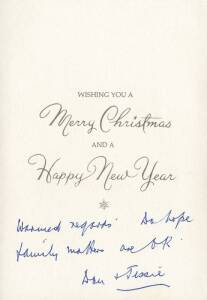 WISHING YOU A
Merry Christmas
AND A
Happy New Year
Warmest regards Do hope
family matters are OK
Don & Tessie